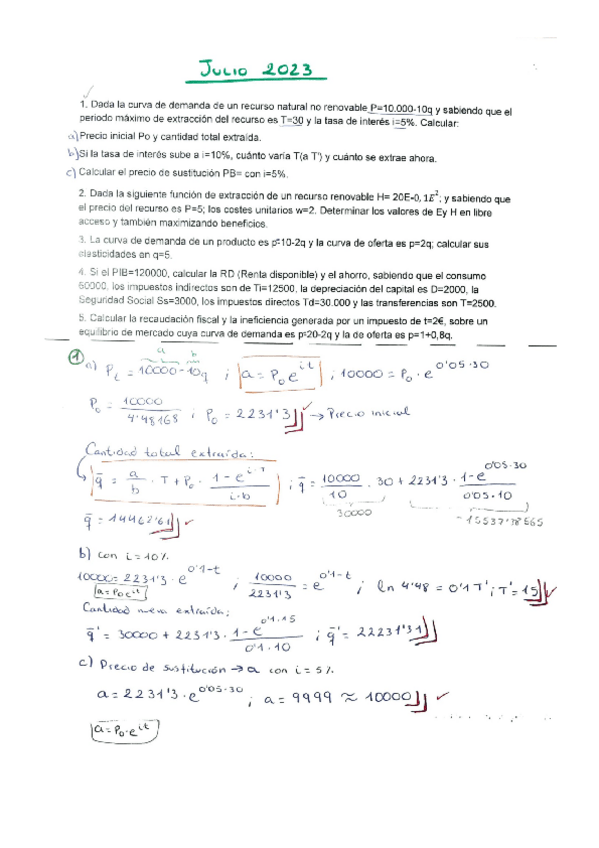 JULIO 2023
1. Dada la curva de demanda de un recurso natural no renovable P=10.000-10q y sabiendo que el
periodo máximo de extracción del recurso es T=30 y la tasa de interés i=5%. Calcular:
a) Precio inicial Po y cantidad total extraída.
b) Si la tasa de interés sube a i=10%, cuánto varía T(a T') y cuánto se extrae ahora.
c) Calcular el precio de sustitución PB= con i=5%.
2. Dada la siguiente función de extracción de un recurso renovable H= 20E-0,1E²; y sabiendo que
el precio del recurso es P=5; los costes unitarios w=2. Determinar los valores de E y H en libre
acceso y también maximizando beneficios.
3. La curva de demanda de un producto es p=10-2q y la curva de oferta es p=2q; calcular sus
elasticidades en q=5.
4. Si el PIB=120000, calcular la RD (Renta disponible) y el ahorro, sabiendo que el consumo
60000, los impuestos indirectos son de Ti=12500, la depreciación del capital es D=2000, la
Seguridad Social Ss=3000, los impuestos directos Td=30.000 y las transferencias son T=2500.
5. Calcular la recaudación fiscal y la ineficiencia generada por un impuesto de t=2€, sobre un
equilibrio de mercado cuya curva de demanda es p=20-2q y la de oferta es p=1+0,8q.
a b
① a) Pt = 10000-10q ; a = P₀e^it ; 10000 = P₀ · e^0'05·30
P₀ = 10000/4'48168 ; P₀ = 2231'3 → Precio inicial
Cantidad total extraída:
q̄ = a/b · T + P₀ · 1-e^i·T/i·b ; q̄ = 10000/10 · 30 + 2231'3 · 1-e^0'05·30/0'05·10
30000
q̄ = 14462'61
b) con i = 10%
10000 = 2231'3 · e^0'1-t ; 10000/2231'3 = e^0'1-t ; ln 4'48 = 0'1 T' ; T' = 15
a = P₀e^it
Cantidad nueva extraída:
q̄' = 30000 + 2231'3 · 1-e^0'1·15/0'1·10 ; q̄' = 22231'31
c) Precio de sustitución → a con i = 5%
a = 2231'3 · e^0'05·30 ; a = 9999 ≈ 10000
a = P₀·e^it